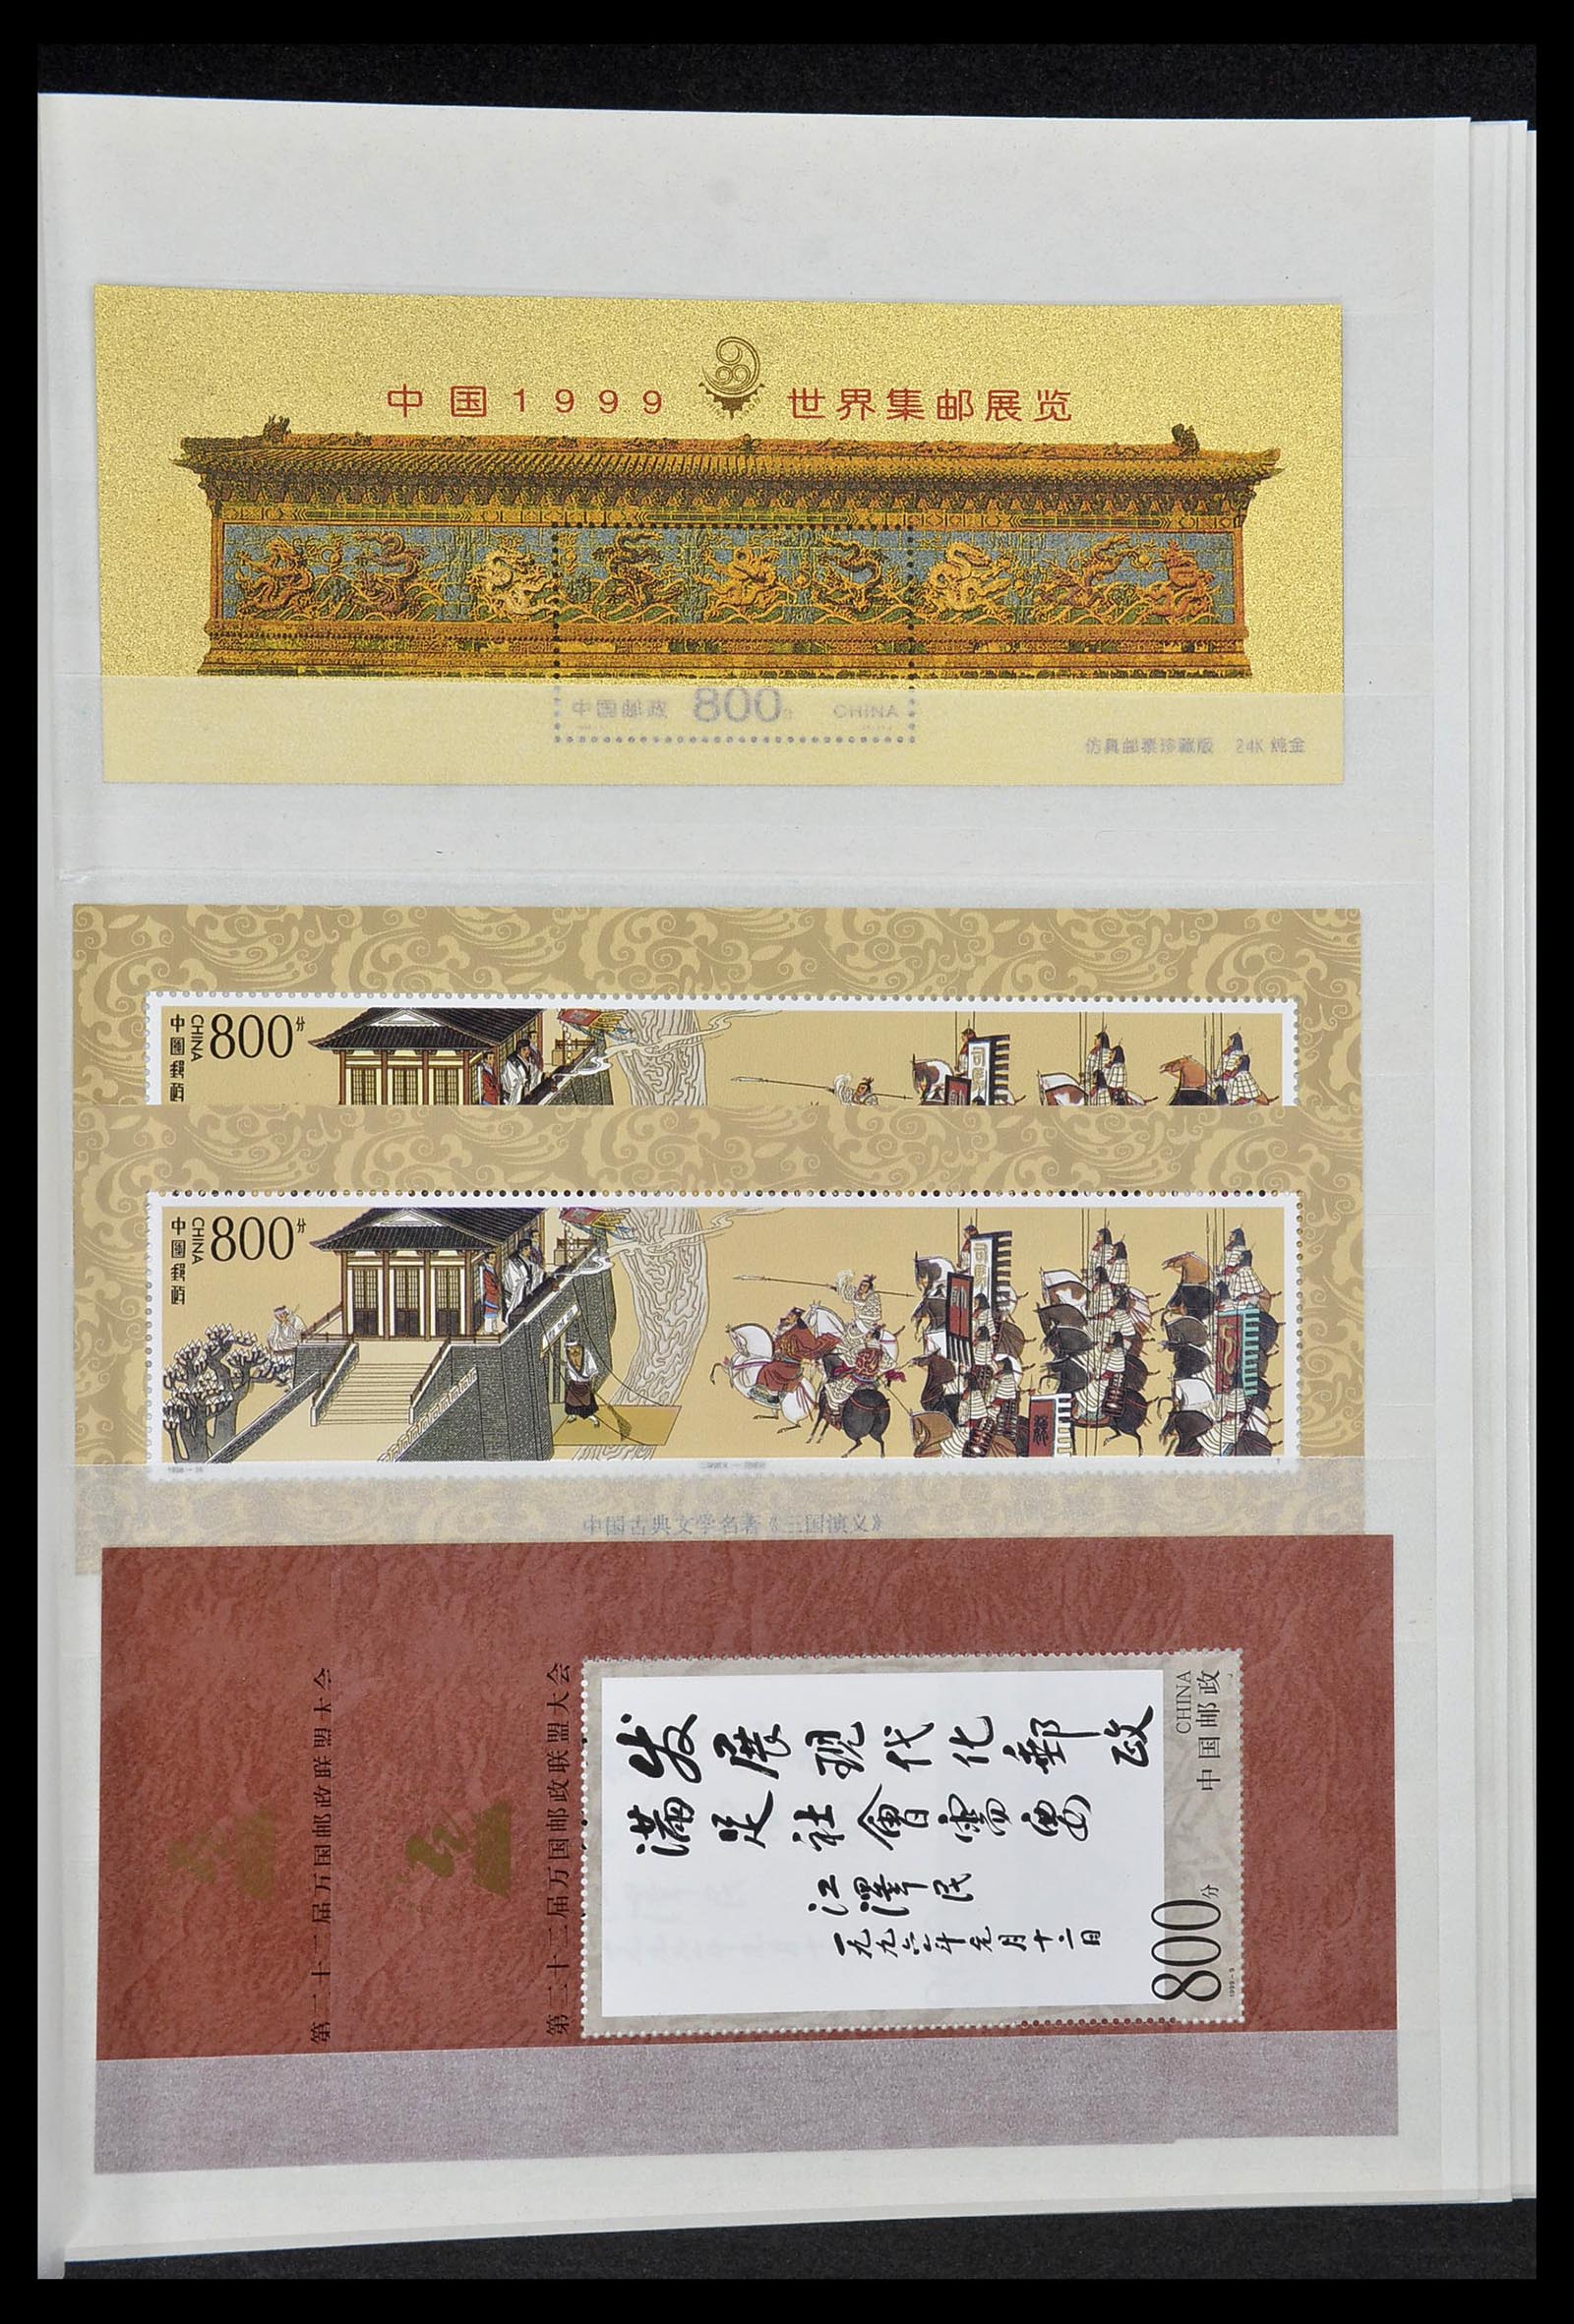 中国1999 世界集邮展览
中国邮政 800分 CHINA
仿真邮票珍藏版 24K 纯金
中國郵政
CHINA
800分
中國郵政
CHINA
800分
中国古典文学名著《三国演义》
第二十二届万国邮政联盟大会
第二十二届万国邮政联盟大会
发展现代化郵政
满足社會需要
江澤民
一九九六年元月十二日
CHINA
中国邮政
800分
1999-9